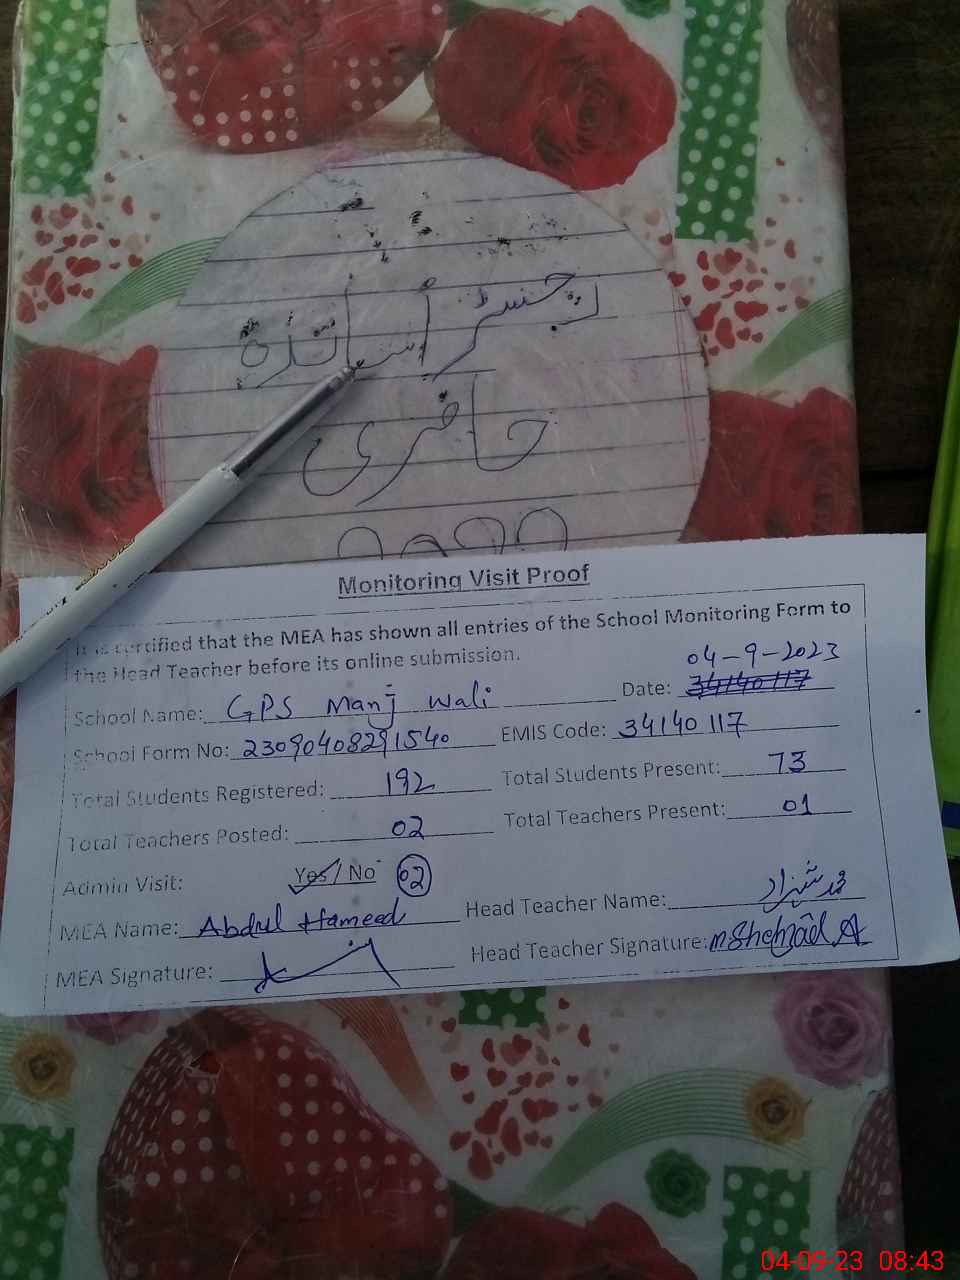 رجسٹر اساتذہ
حاضری
Monitoring Visit Proof
It is certified that the MEA has shown all entries of the School Monitoring Form to
the Head Teacher before its online submission.
04-9-2023
School Name: GPS Manj Wali Date: 34140117
School Form No: 23090408291540 EMIS Code: 34140117
Total Students Registered: 192 Total Students Present: 73
Total Teachers Posted: 02 Total Teachers Present: 01
Admin Visit: Yes / No 02
MEA Name: Abdul Hameed Head Teacher Name: محمد شہزاد
MEA Signature: Head Teacher Signature: mShehzad A
04-09-23 08:43